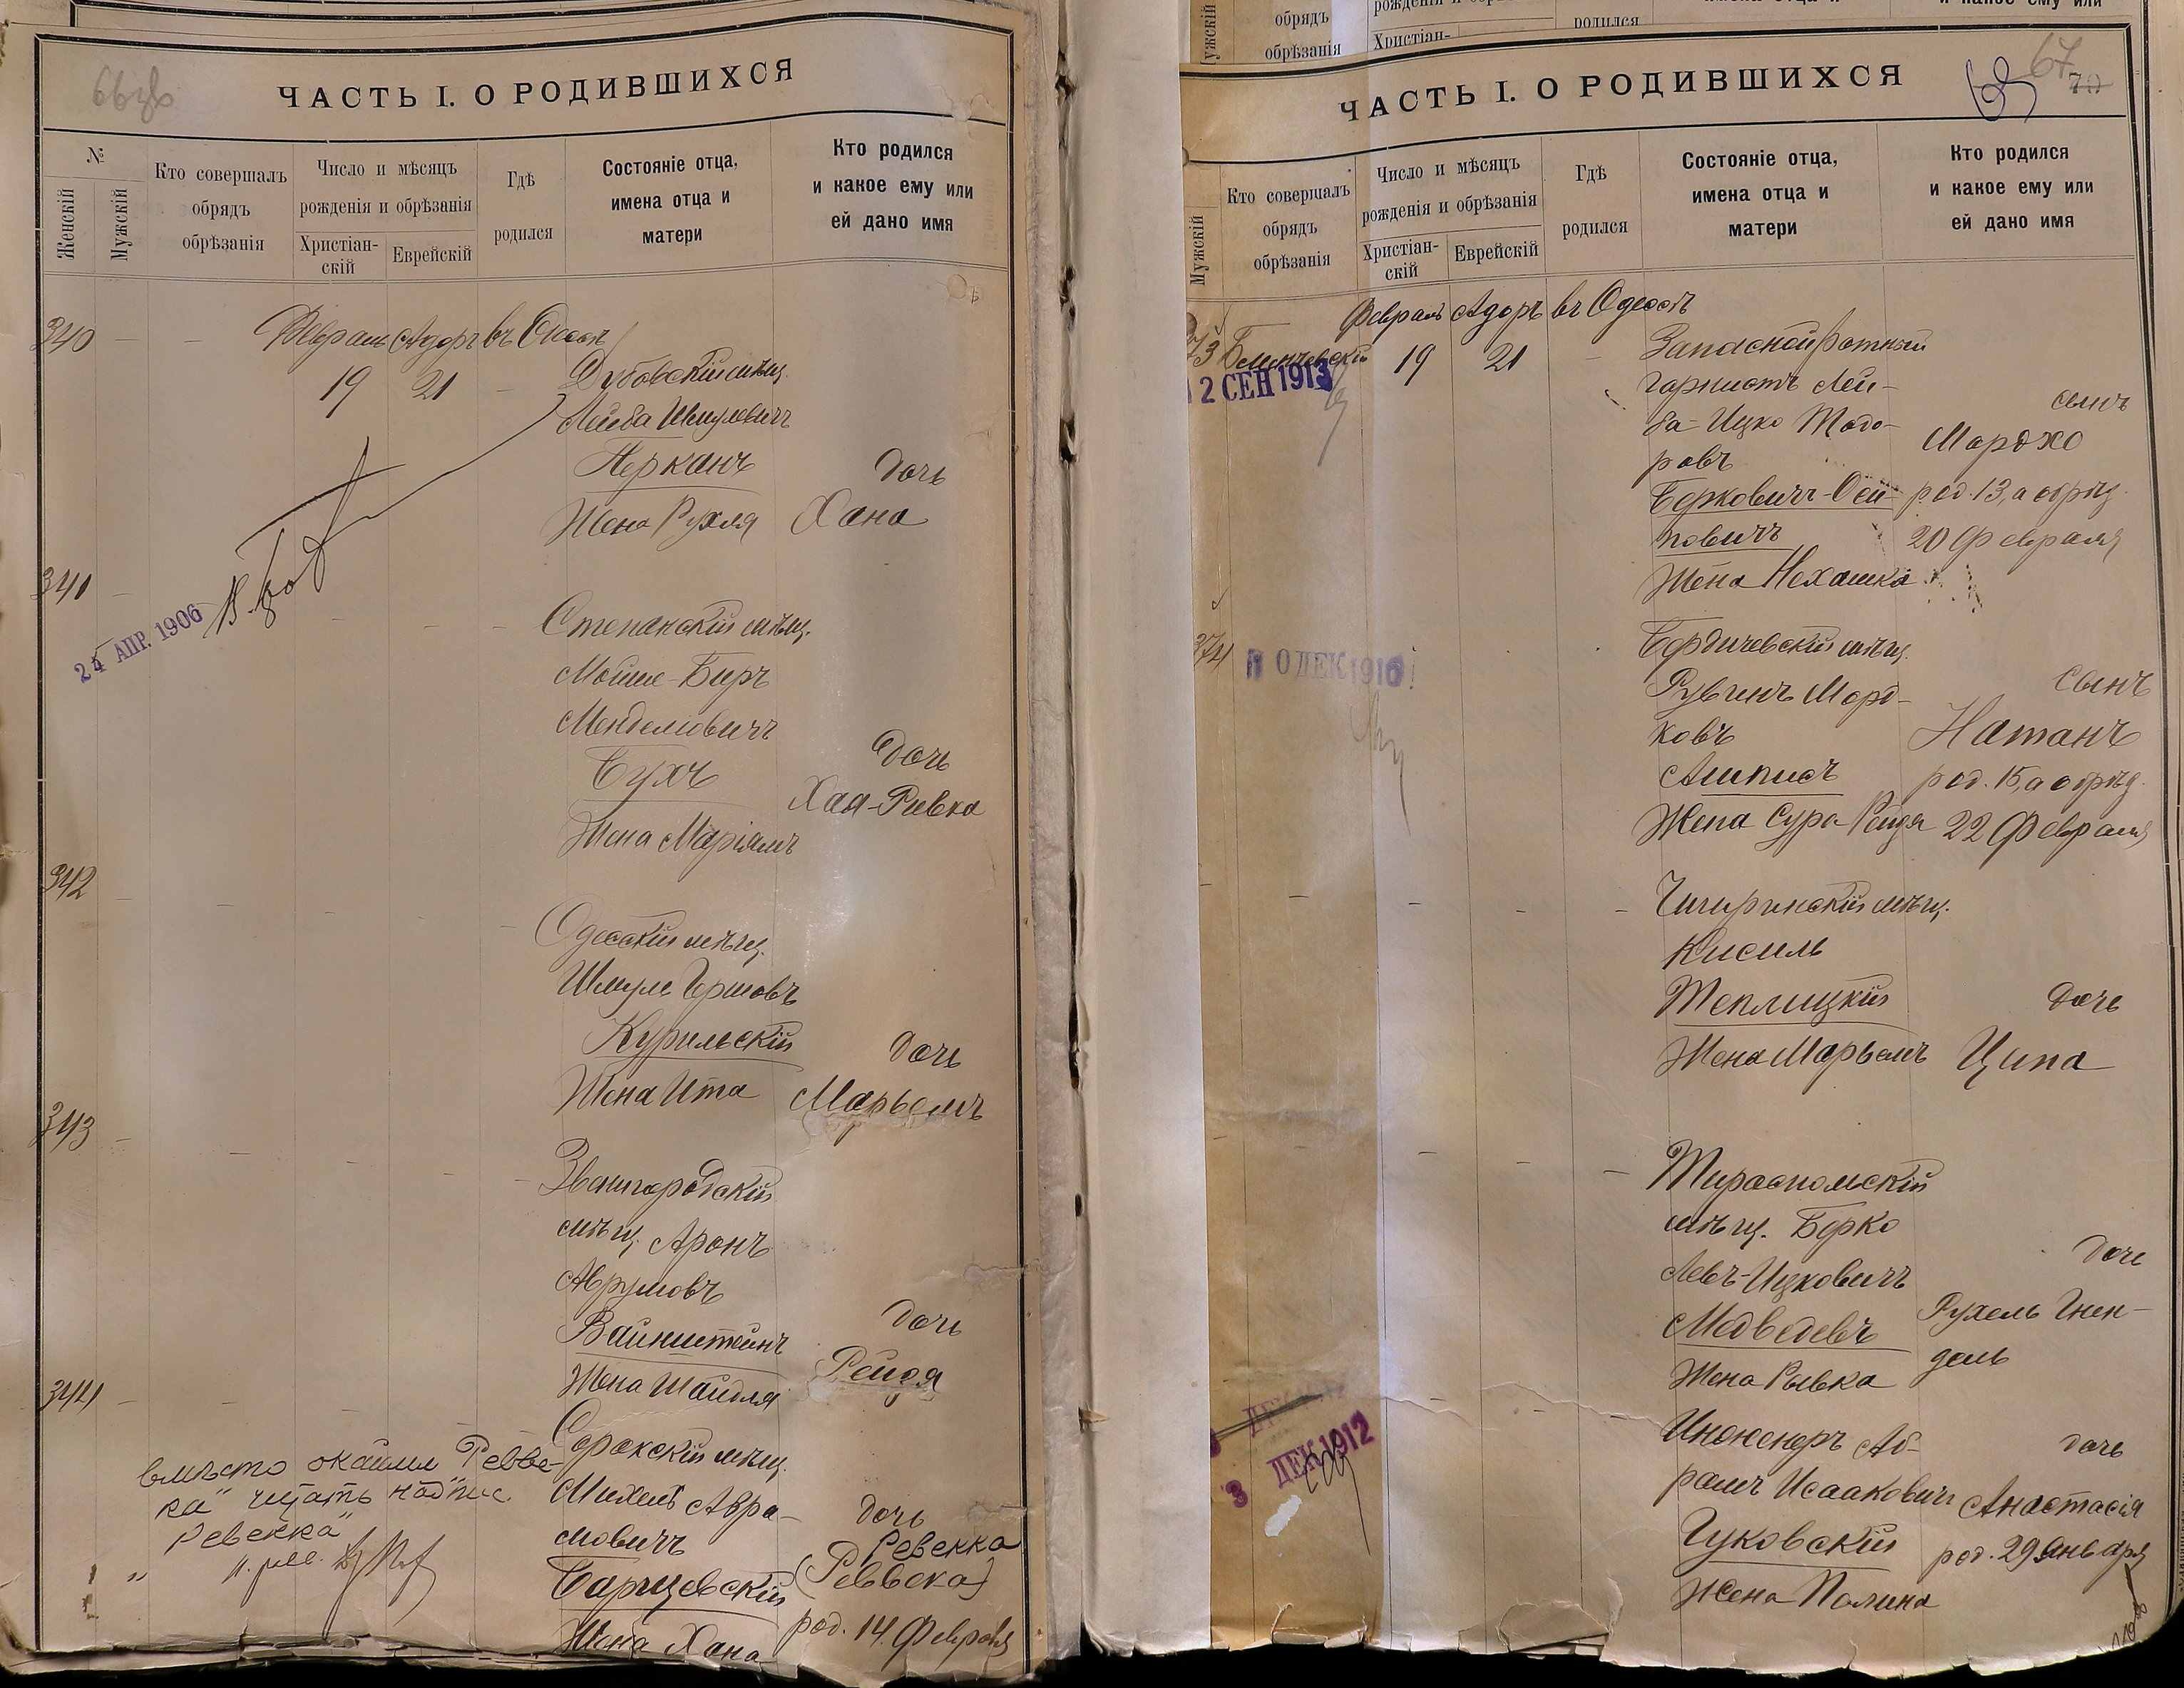 ЧАСТЬ I. О РОДИВШИХСЯ
№
Женскій
Мужскій
Кто совершалъ
обрядъ
обрѣзанія
Число и мѣсяцъ
рожденія и обрѣзанія
Христіан-
скій
Еврейскій
Гдѣ
родился
Состояніе отца,
имена отца и
матери
Кто родился
и какое ему или
ей дано имя
340
Февраль Адоръ въ Одессѣ
19 21
Дубовскій мѣщ.
Лейба Шмулевичъ
Жена Рухля
дочь
Хана
341
24 АПР. 1906
Степанскій мѣщ.
Мойше-Беръ
Менделіовичъ
Бухъ
Жена Маріямъ
дочь
Хая-Ривка
342
Одесскій мѣщ.
Шмуль Гершовъ
Курильскій
Жена Ита
дочь
Марьемъ
343
Звенигородскій
мѣщ. Аронъ
Аврумовъ
Вайнштейнъ
Жена Шайдля
дочь
Рейзя
344
Сорокскій мѣщ.
Михель Авра-
мовичъ
Барщевскій
Жена Хана
дочь
Ревекка
(Реввека)
род. 14 Февраля
вмѣсто
ка" читать надпис.
Ревекка"
ЧАСТЬ I. О РОДИВШИХСЯ
67
70
Мужскій
Кто совершалъ
обрядъ
обрѣзанія
Число и мѣсяцъ
рожденія и обрѣзанія
Христіан-
скій
Еврейскій
Гдѣ
родился
Состояніе отца,
имена отца и
матери
Кто родился
и какое ему или
ей дано имя
Февраль Адоръ въ Одессѣ
19 21
2 СЕН 1913
Запасной ротный
горнистъ Лей-
ба-Ицко Тодо-
ровъ
Берковичъ-Оси-
повичъ
Жена Нехамка
сынъ
Мордхо
род. 13, а обрѣз.
20 Февраля
374
0 ДЕК 1910
Бердичевскій мѣщ.
Рувинъ Морд-
ковъ
Ашписъ
Жена Сура Рейзя
сынъ
Натанъ
род. 15, а обрѣз.
22 Февраля
Чигиринскій мѣщ.
Кисиль
Теплицкій
Жена Марьемъ
дочь
Ципа
Тираспольскій
мѣщ. Берко
Левъ-Ицковичъ
Медведевъ
Жена Рывка
дочь
Рухель Гнен-
дель
3 ДЕК 1912
Инженеръ Аб-
рамъ Исааковичъ
Гуковскій
Жена Полина
дочь
Анастасія
род. 29 Января